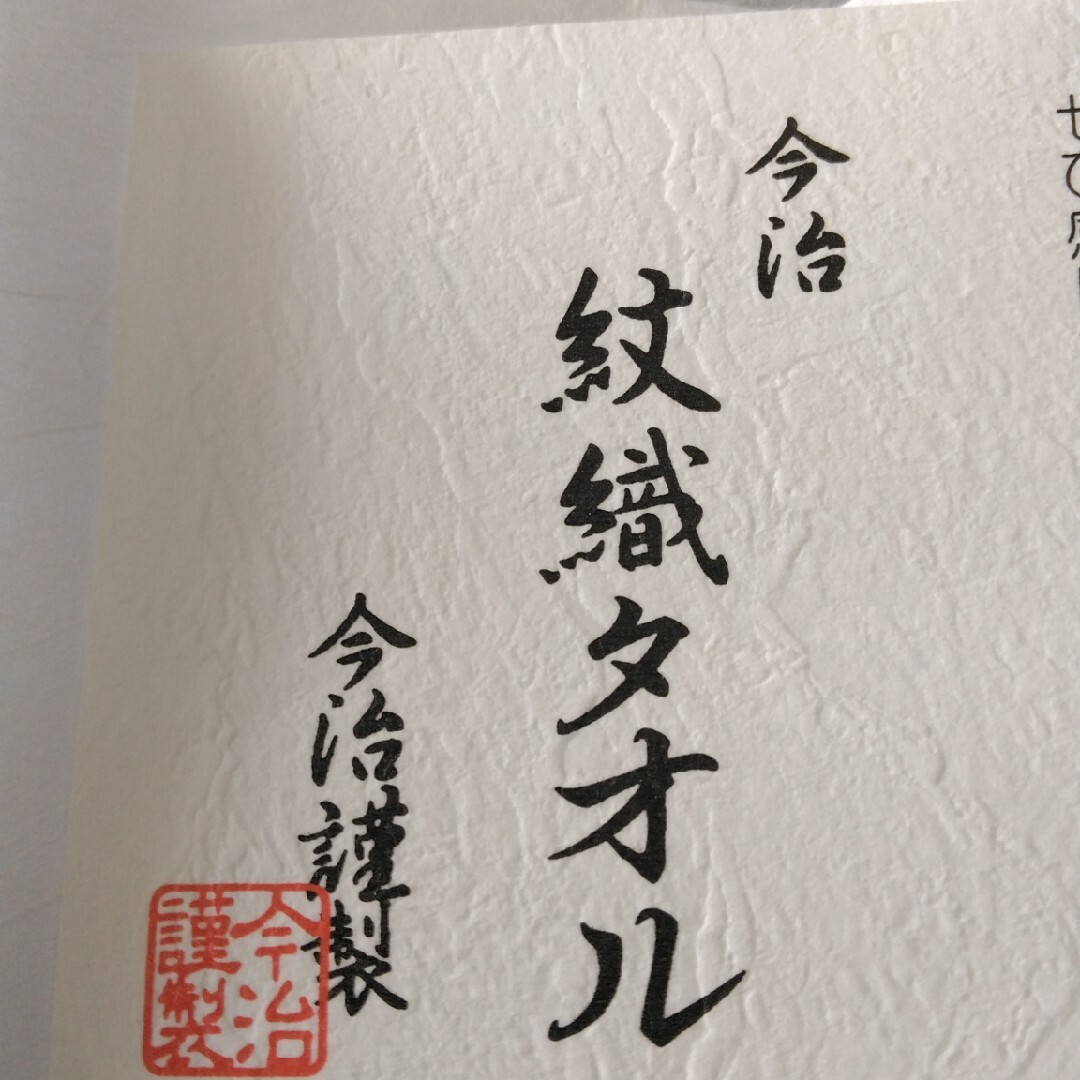 ぜひ
今治
紋織タオル
今治謹製
今治
謹製